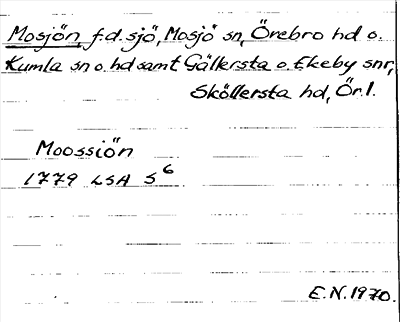 Mosjön, f.d. sjö, Mosjö sn, Örebro hd o.
Kumla sn o. hd samt Gällersta o. Ekeby snr,
Sköllersta hd, Ör.l.
Moossiön
1779 LSA S6
E.N. 1970.